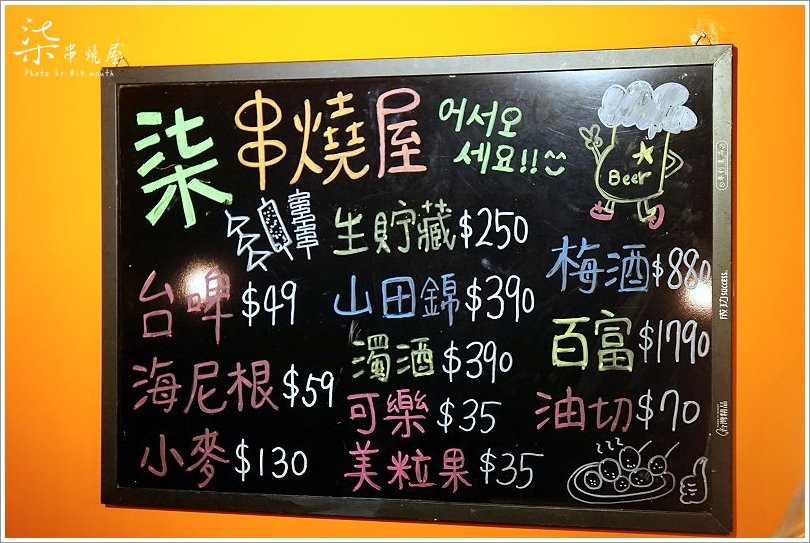 柒串燒屋
Photo by Big mouth
柒 串燒屋
어서오
세요!!
Beer
生貯藏 $250
梅酒 $880
台啤 $49
山田錦 $390
百富 $1790
海尼根 $59
濁酒 $390
可樂 $35
油切 $70
小麥 $130
美粒果 $35
成功 SUCCESS.
台灣精品